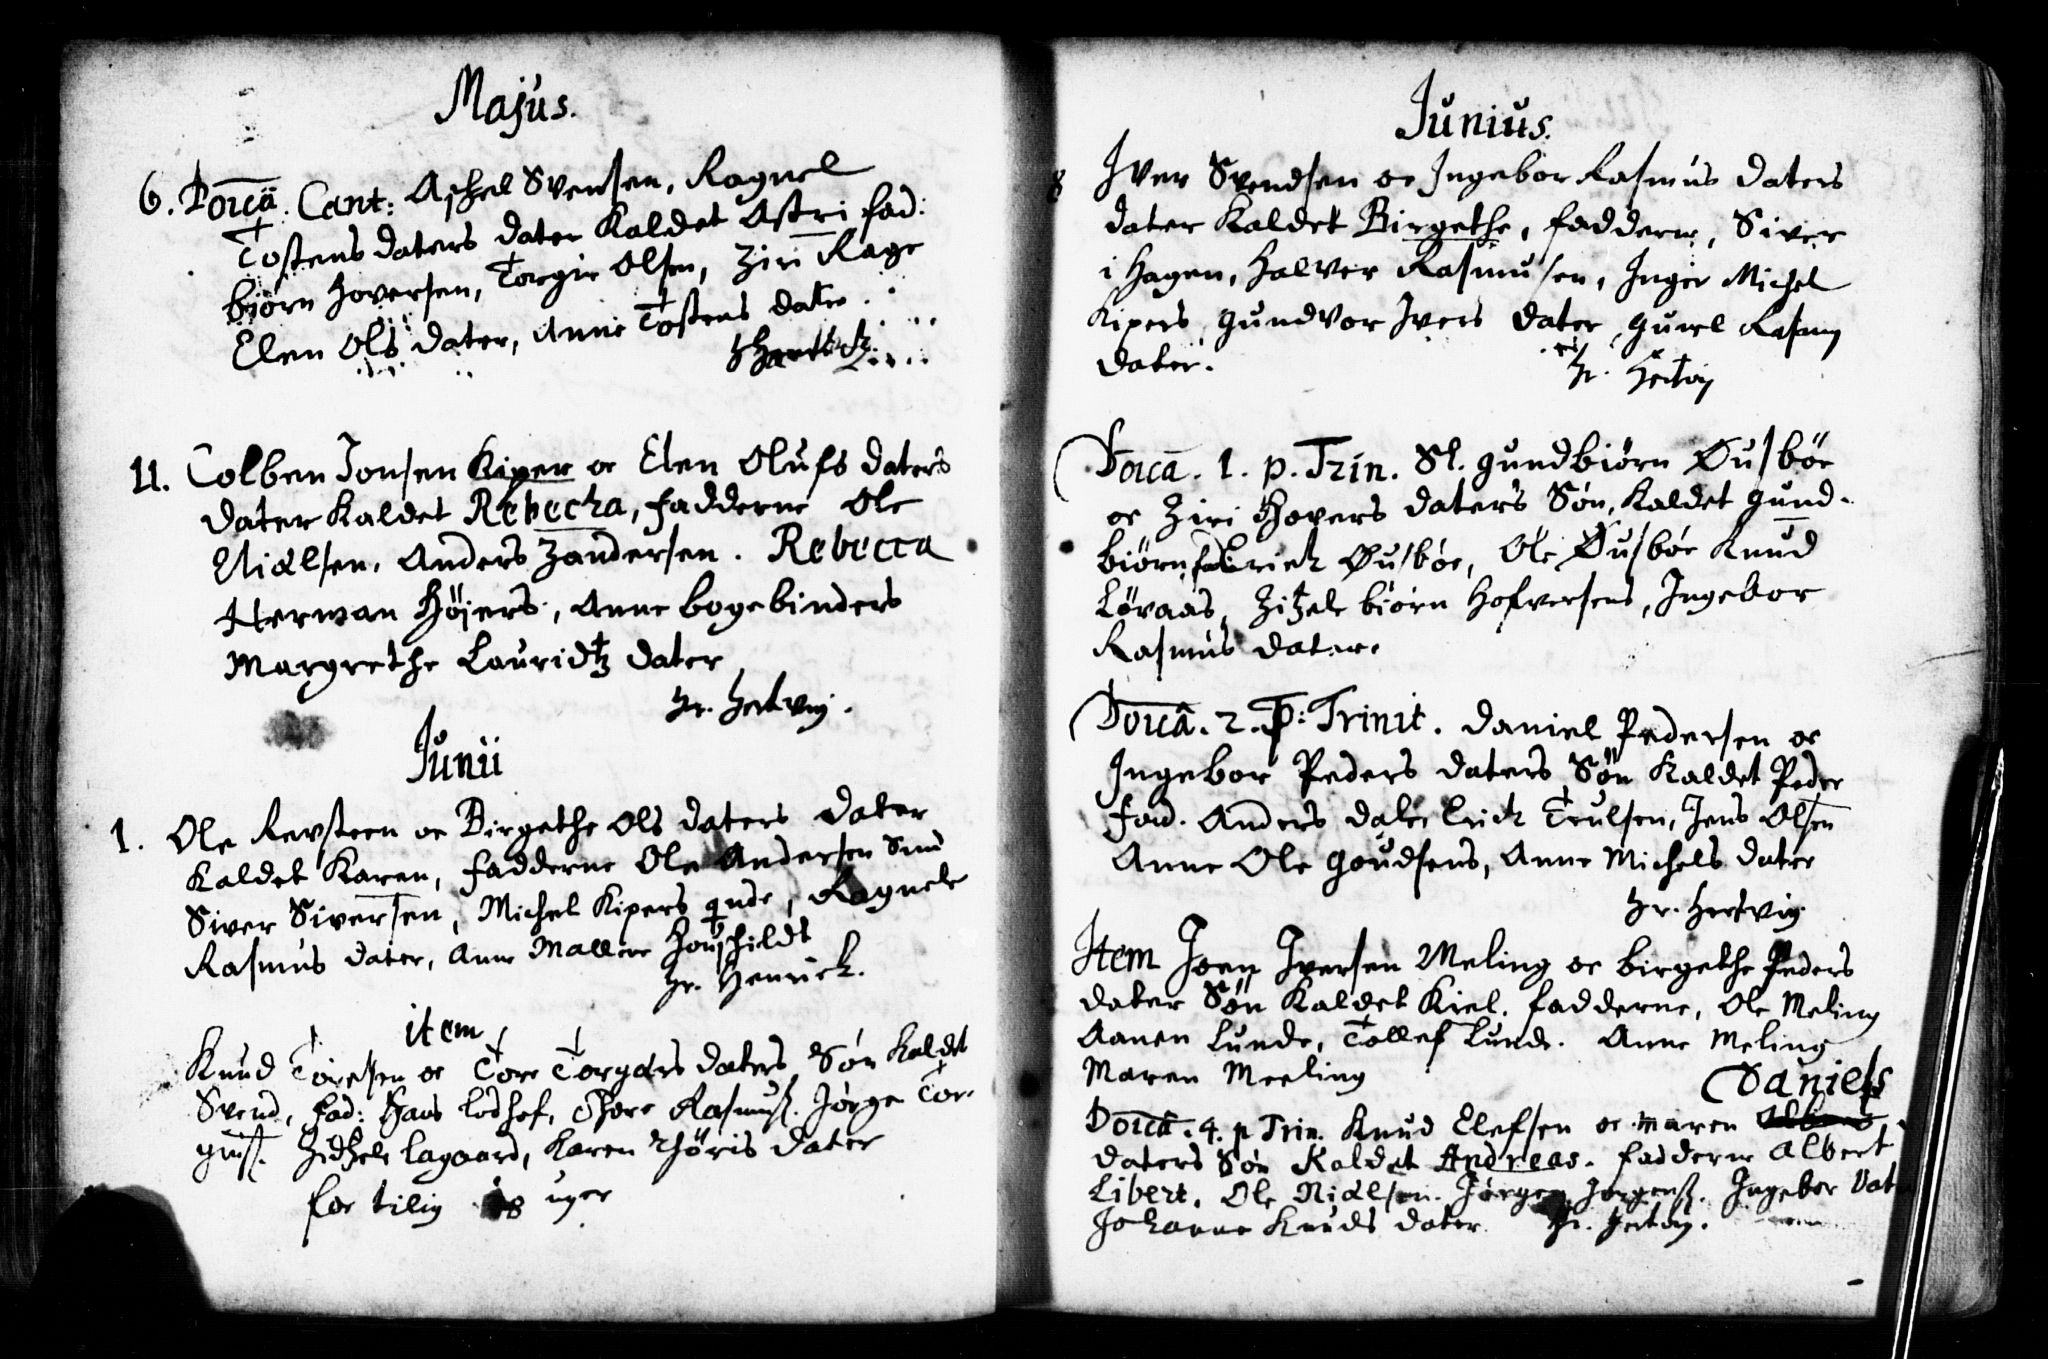 Majus.
6. Doicâ. Cant: Aschel Svensen, Ragnel
Tostens daters dater Kaldet Astri fad:
biørn Hoversen, Torgir Olsen, Ziri Rage
Elen Ols dater, Anne Tostens dater.
11. Tolben Jonsen Kiper oc Elen Olufs daters
dater Kaldet Rebecha, fadderne Ole
Nielsen, Anders Zandersen. Rebecca
Herman Høiers, Anne bogebinders
Margrethe Lauridtz dater
Hr. Hertvig.
Junii
1. Ole Revsteen oc Birgethe Ols daters dater
Kaldet Karen, fadderne Ole Andersen
Siver Siversen, Michel Kipers qnde, Ragnele
Rasmus dater, Anne Mallene Houschildt
Hr. Henrick.
item
Knud Toresen oc Tore Torgars daters Søn Kaldet
Svend, fad: Hans lodhof, Thore Rasmuss. Jørge Tor-
guss. Zidzele lagaard, Karen Thøris dater
for tilig 18 uger
Junius.
8 Iver Svendsen oc Ingebor Rasmus daters
dater Kaldet Birgethe, fadderne, Siver
i Hagen, Halver Rasmusen, Inger Michel
Kipers, Gundvor Ivers dater, Gurel Rasmus
dater.
Hr. Hertvig
Doicâ. 1. p. Trin. Sl. Gundbiørn Øusbøe
oc Ziri Hovers daters Søn, Kaldet Gund-
biørn, fad. Erick Øusbøe, Ole Øusbøe Knud
Løvaas, Zitzele biørn Hofversens, Ingebor
Rasmus dater.
Doicâ. 2. p: Trinit. Daniel Pedersen oc
Ingebor Peders daters Søn Kaldet Peder
fad. Anders dale Erick Trulsen, Jens Olsen
Anne Ole Goudsens, Anne Michels dater
Hr. Hertvig.
Item Joen Iversen Meling oc birgethe Peders
dater Søn Kaldet Kiel. fadderne, Ole Meling
Aanen Lunde, Tollef Lunde. Anne Meling
Maren Meeling
Daniels
Doicâ. 4. p Trin. Knud Elefsen oc Maren
daters Søn Kaldet Andreas. fadderne Albert
Libert, Ole Nielsen. Jørgen Jørgenss. Ingebor
Johanne Knuds dater Hr. Hertvig.